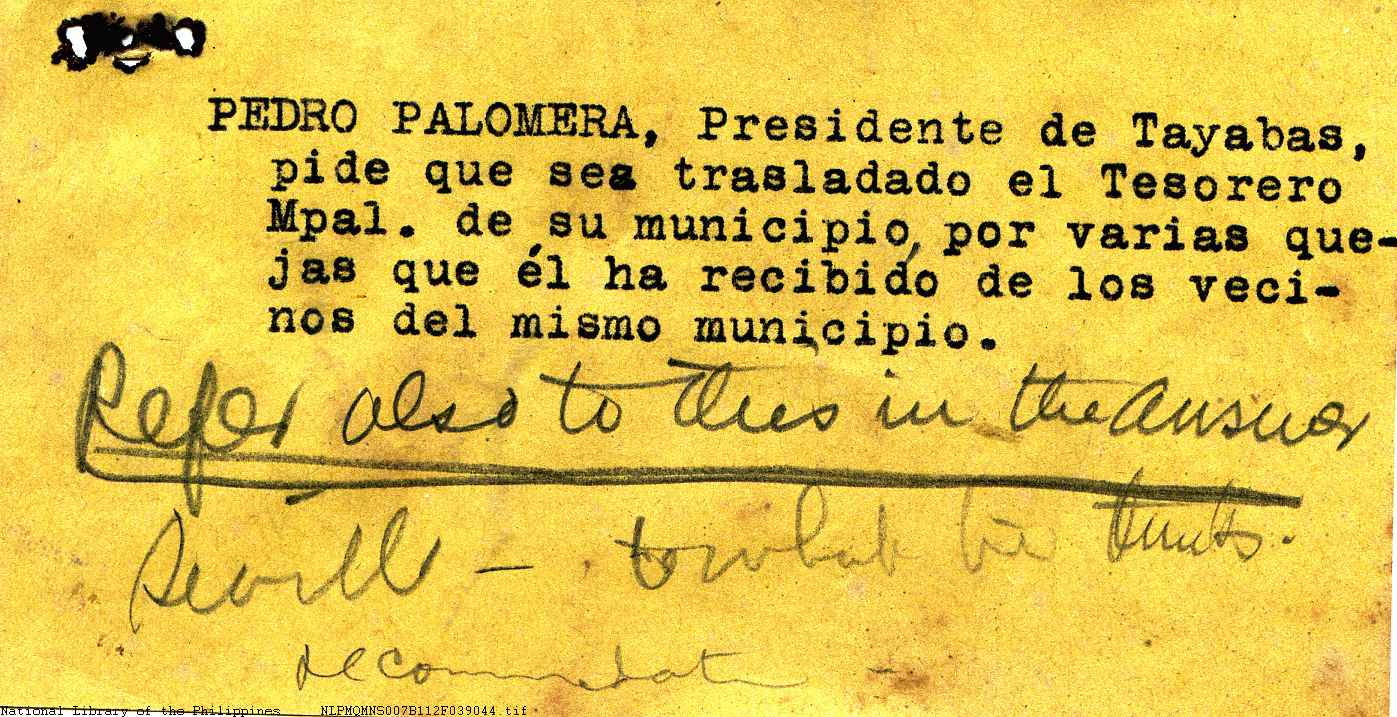 PEDRO PALOMERA, Presidente de Tayabas,
pide que sea trasladado el Tesorero
Mpal. de su municipio, por varias que-
jas que él ha recibido de los veci-
nos del mismo municipio.
Refer also to this in the answer
to what he thinks.
National Library of the Philippines NLPMQMNS007B112F039044.tif